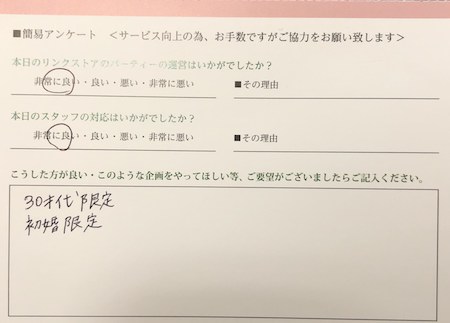 ■簡易アンケート <サービス向上の為、お手数ですがご協力をお願い致します>
本日のリンクストアのパーティーの運営はいかがでしたか?
非常に良い・良い・悪い・非常に悪い ■その理由
本日のスタッフの対応はいかがでしたか?
非常に良い・良い・悪い・非常に悪い ■その理由
こうした方が良い・このような企画をやってほしい等、ご要望がございましたらご記入ください。
30才代限定
初婚限定